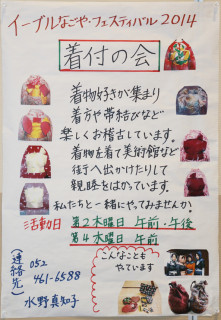 イーブルなごやフェスティバル2014
着付の会
着物好きが集まり
着方や帯結びなど
楽しくお稽古しています。
着物を着て美術館など
街ﾍ出かけたりして
親睦をはかています。
私たちと一緒にやってみませんか?
活動日 第2木曜日 午前・午後
第4木曜日 午前
こんなことも
やっています
(連絡先)
052
461-6588
水野真知子